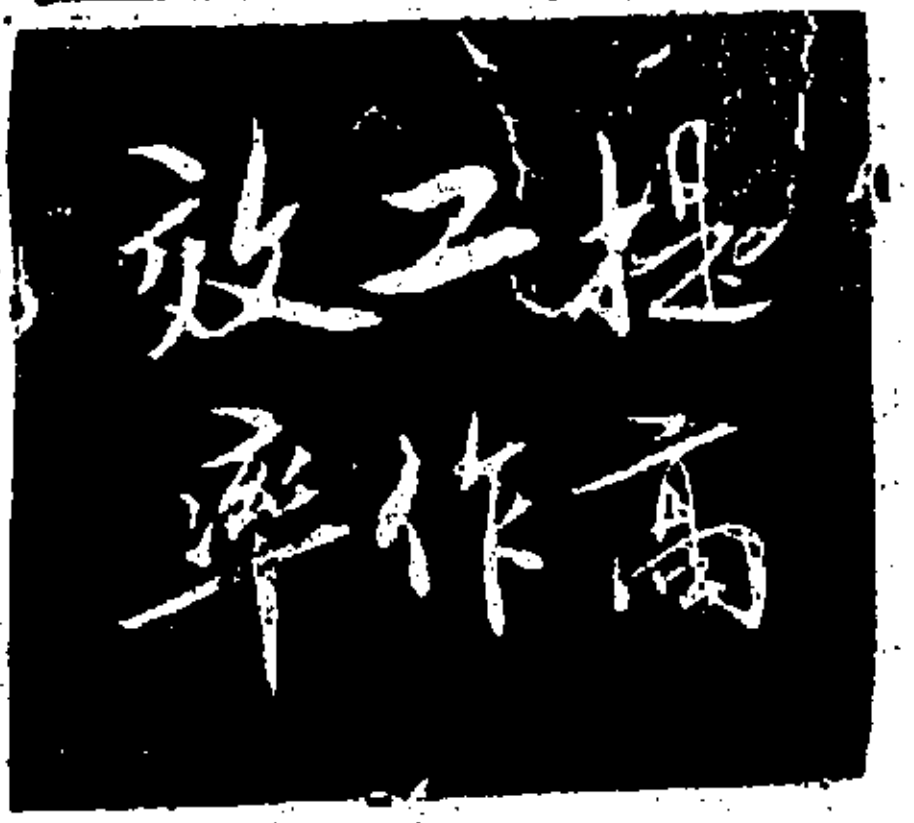 提高
工作
效率